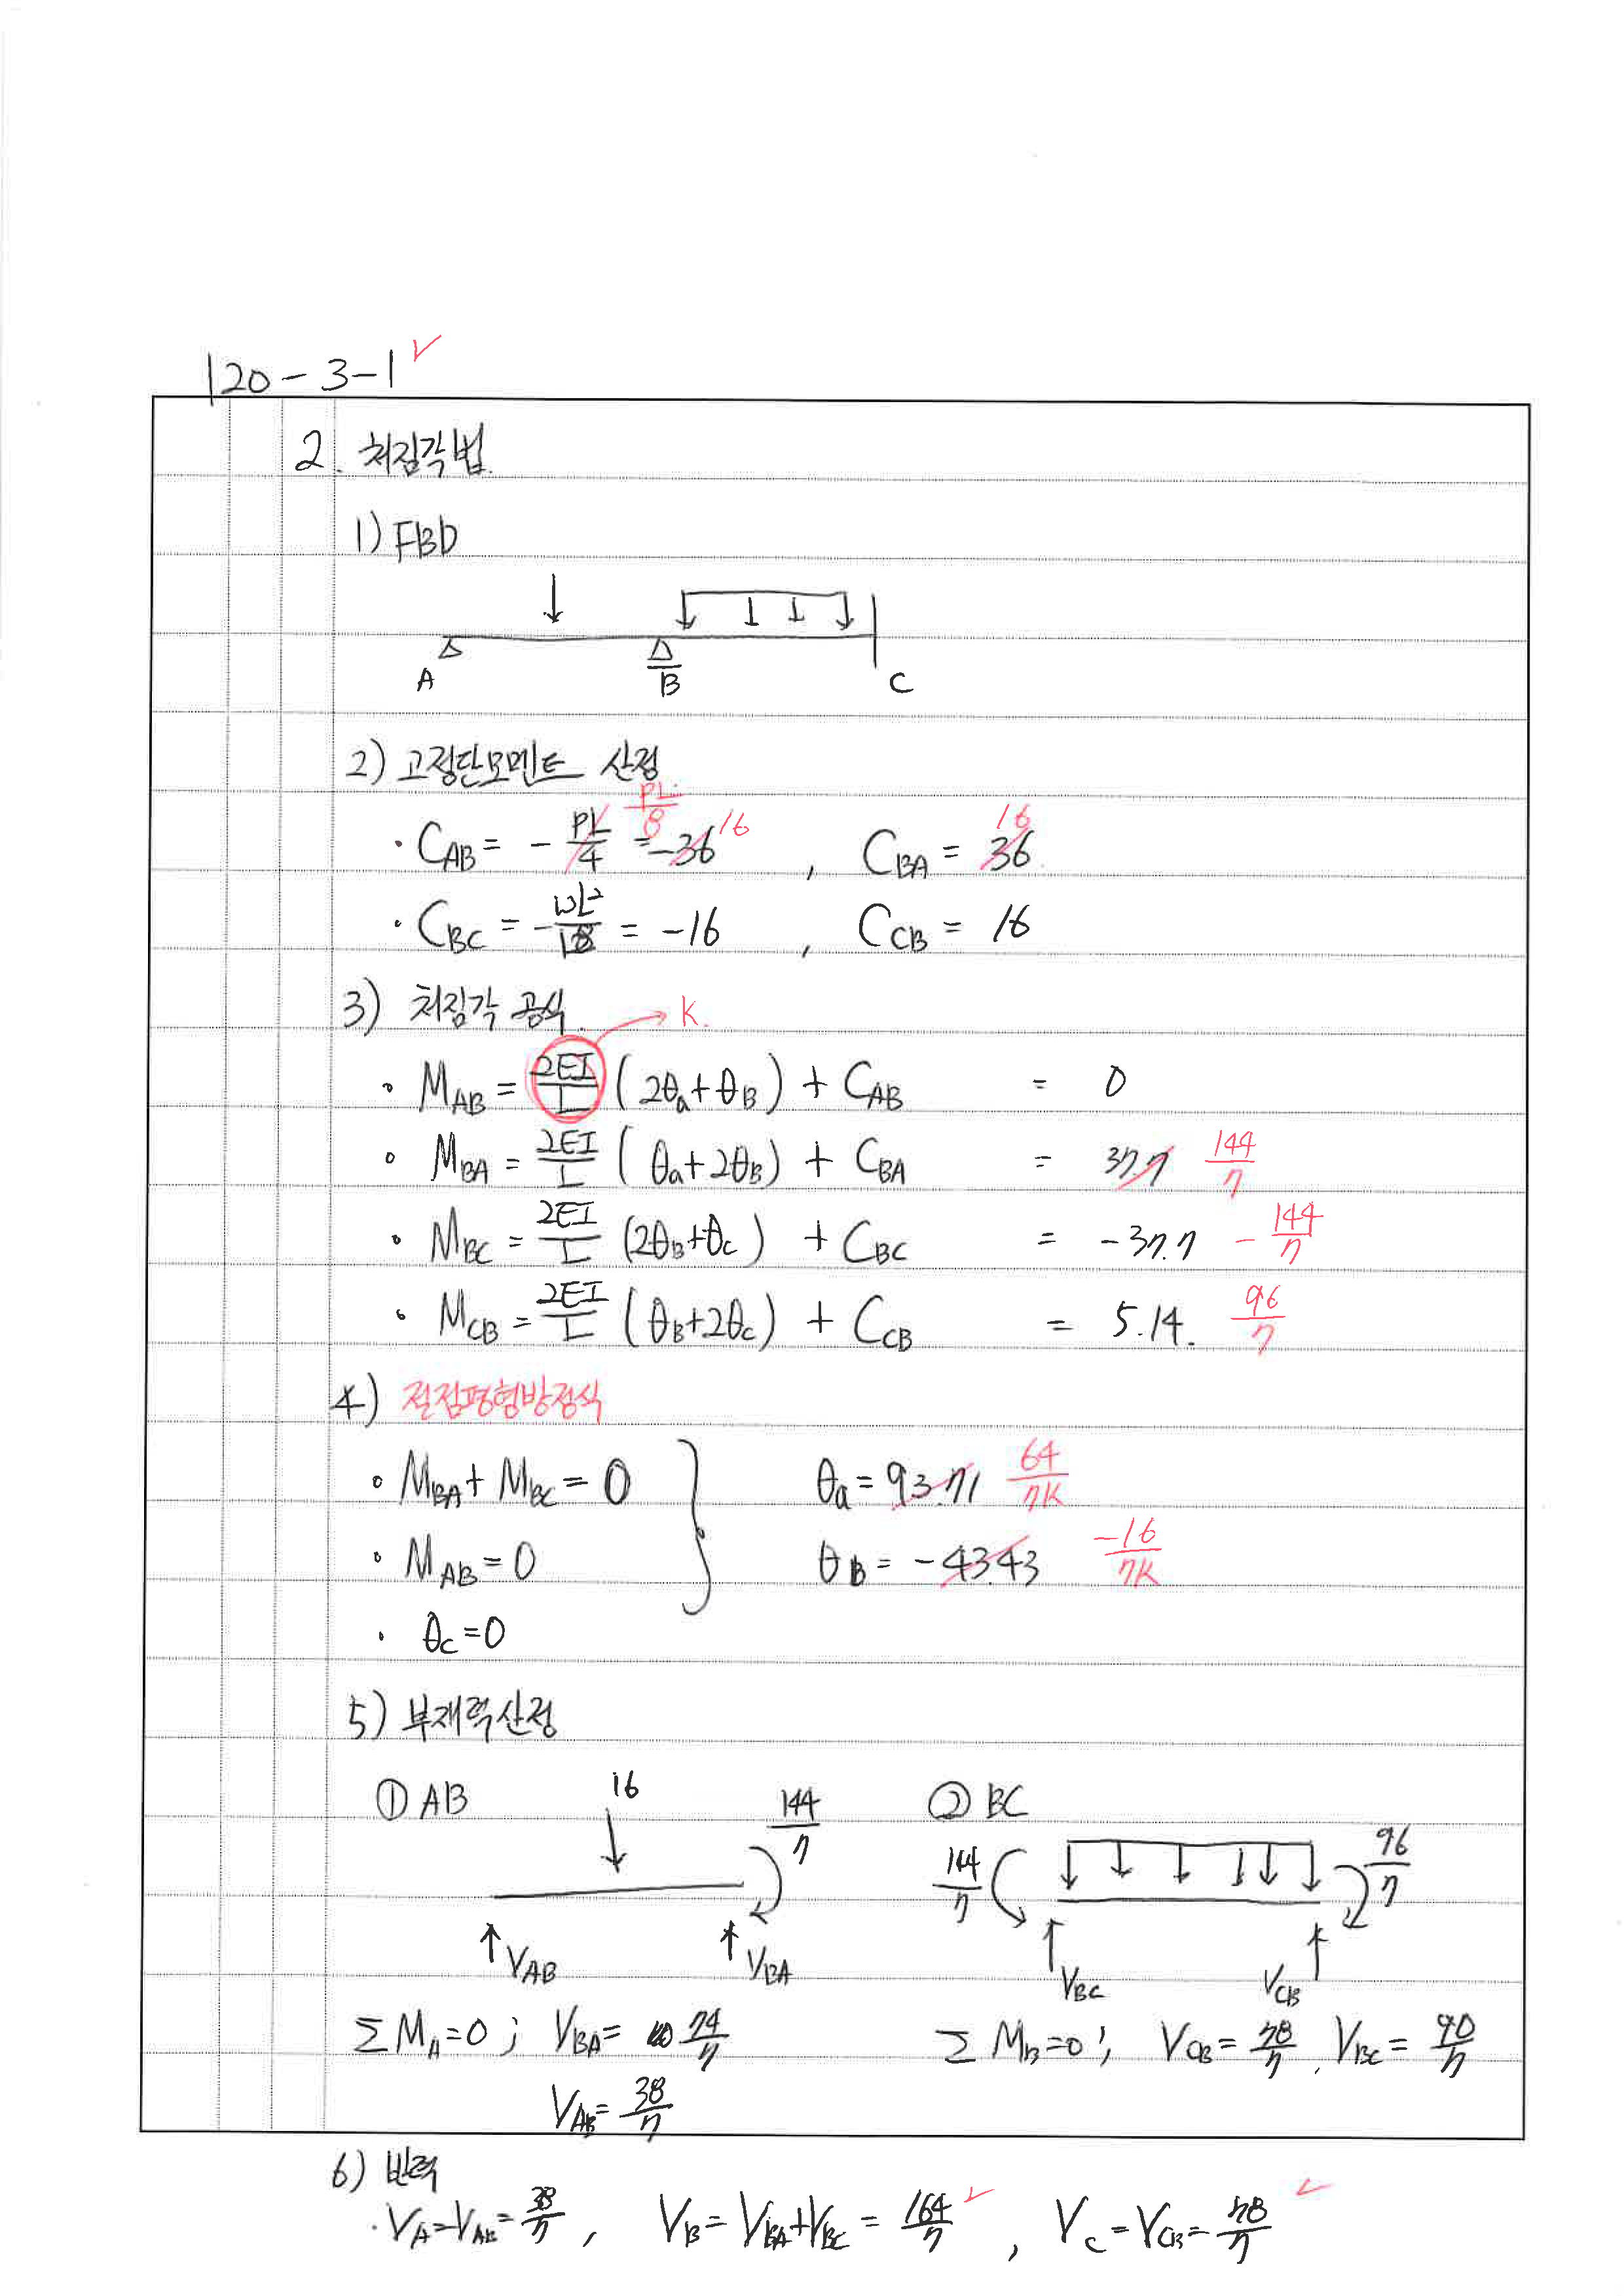 120-3-1 ✓
2. 처짐각법.
1) FBD
A B C
2) 고정단모멘트 산정
· C_AB = - PL/4 = -36 PL/8 16 , C_BA = 36 16
· C_BC = - wL²/12 = -16 , C_CB = 16
3) 처짐각 공식. → K.
· M_AB = 2EI/L (2θ_a + θ_B) + C_AB = 0
· M_BA = 2EI/L (θ_a + 2θ_B) + C_BA = 37.7 144/7
· M_BC = 2EI/L (2θ_B + θ_C) + C_BC = -37.7 - 144/7
· M_CB = 2EI/L (θ_B + 2θ_C) + C_CB = 5.14. 96/7
4) 절점평형방정식
· M_BA + M_BC = 0 θ_a = 93.71 64/7K
· M_AB = 0 θ_B = -43.43 -16/7K
· θ_C = 0
5) 부재력산정
① AB 16 144/7 ② BC 144/7 96/7
V_AB V_BA V_BC V_CB
ΣM_A = 0 ; V_BA = 74/7 ΣM_B = 0 ; V_CB = 78/7 . V_BC = 90/7
V_AB = 38/7
6) 반력
· V_A = V_AB = 38/7 , V_B = V_BA + V_BC = 164/7 ✓ , V_C = V_CB = 78/7 ✓